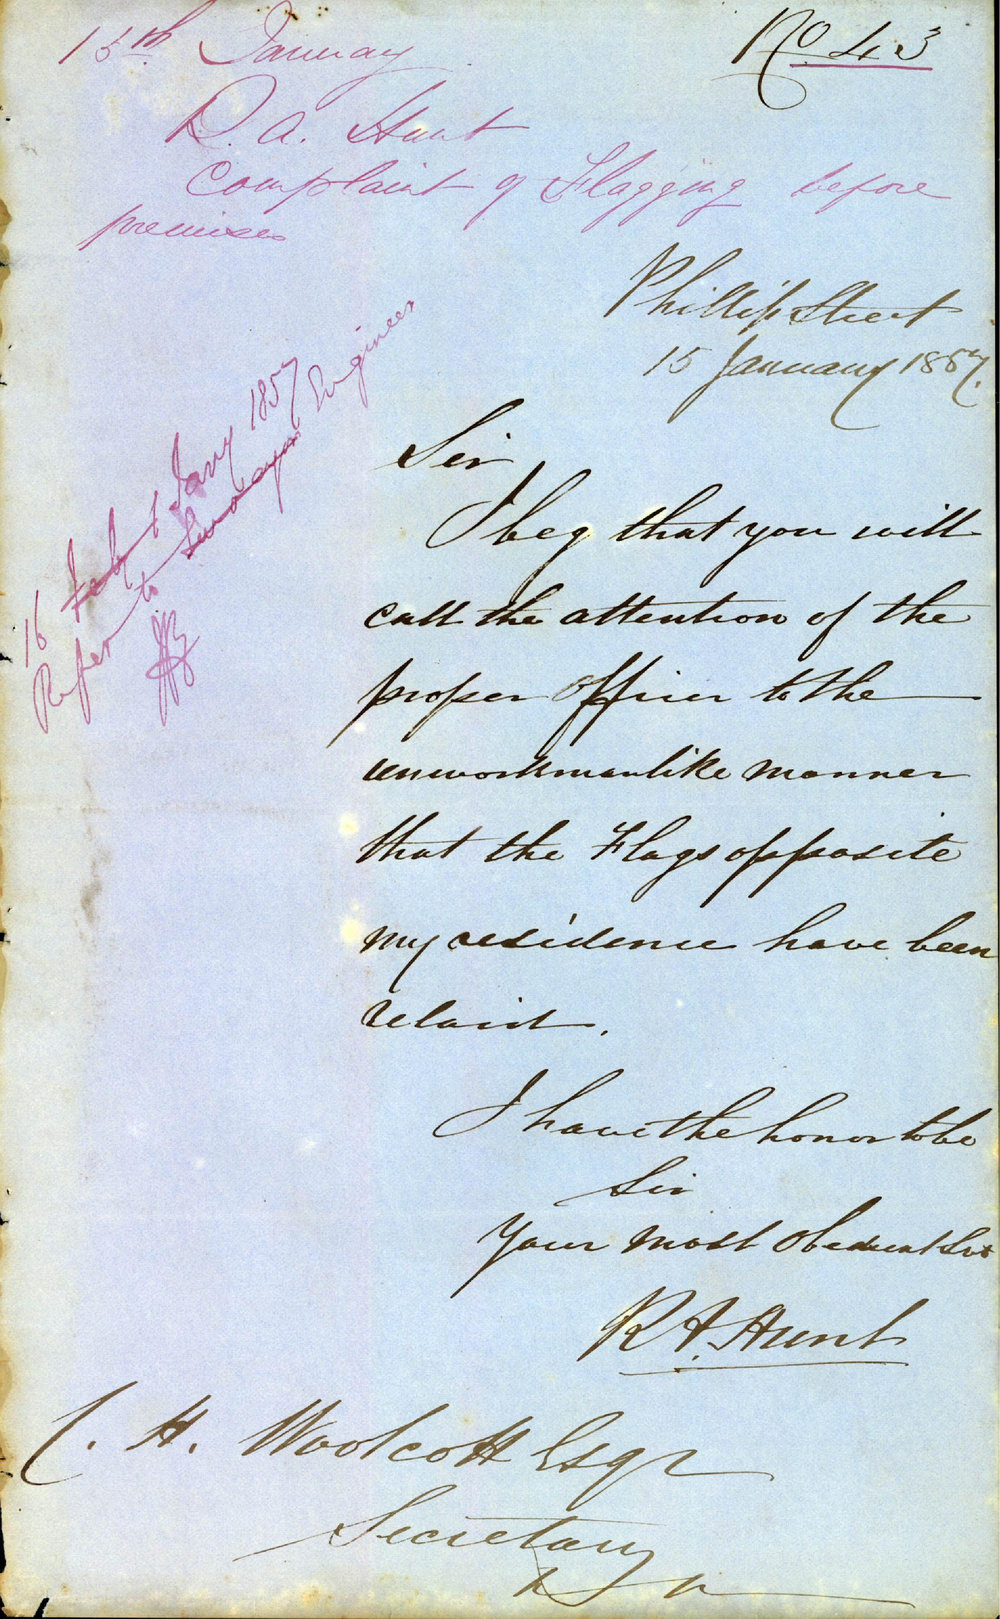 15th January
No. 43
R. A. Hunt
Complaint of Flagging before
premises
Phillip Street
15 January 1857.
16 Feby Jany 1857
Refer to Surveyor Engineer
Sir
I beg that you will
call the attention of the
proper Officer to the
unworkmanlike manner
that the Flags opposite
my residence have been
relaid.
I have the honor to be
Sir
Your most Obedient Svt
R A. Hunt
C. H. Woolcott Esqr
Secretary